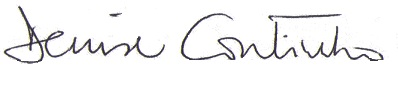 Denise Coutinho